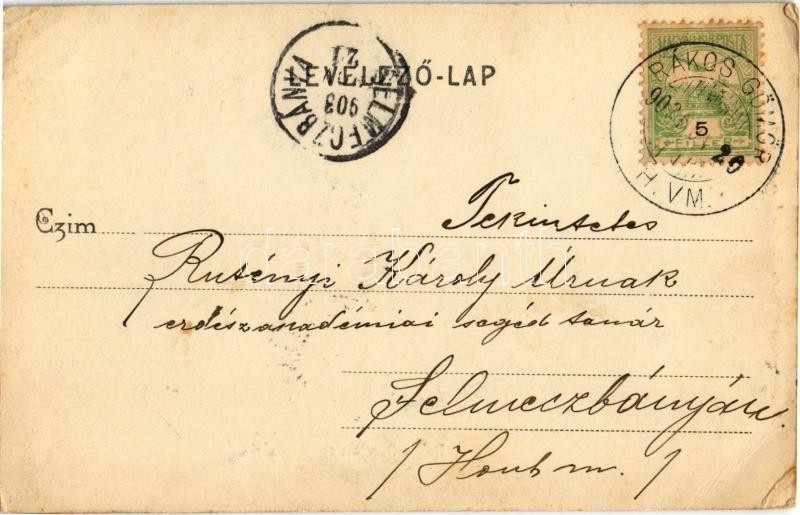 LEVELEZŐ-LAP
SELMECZBÁNYA
903
21
MAGYAR KIR. POSTA
5
FILLÉR
RÁKOS GÖMÖR
903
20
H. VM.
Czim
Tekintetes
Rutényi Károly Úrnak
erdész akadémiai segéd tanár
Selmeczbányán.
/Hont m./
darabanth